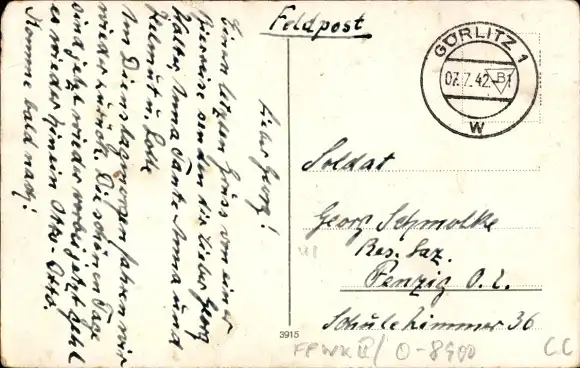 Feldpost
GÖRLITZ 1
07.7.42.
B1
W
Lieber Georg!
Einen letzten Gruss von einer
Bierreise senden dir lieber Georg
Walter, Anna Tante Anna und
Helmut u. Lotte
Am Dienstagmorgen fahren wir
wieder zurück. Die schönen Tage
sind jetzt wieder vorbei jetzt geht
es wieder hinein Otto. Otto.
Komme bald nach!
Soldat
Georg Schmolke
Res. Laz.
Penzig O. L.
Schule Zimmer 36
3915
FPWK II / O-8900
CC